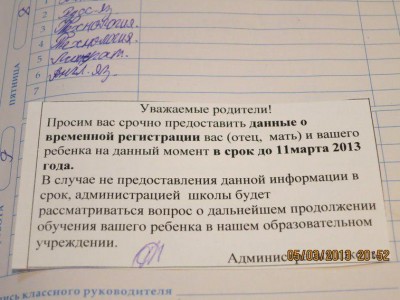 2
3
4
5
6
7
Русс. яз
Технология.
Технология.
Литерат.
Англ. яз.
ПЯТНИЦА
Уважаемые родители!
Просим вас срочно предоставить данные о
временной регистрации вас (отец, мать) и вашего
ребенка на данный момент в срок до 11марта 2013
года.
В случае не предоставления данной информации в
срок, администрацией школы будет
рассматриваться вопрос о дальнейшем продолжении
обучения вашего ребенка в нашем образовательном
учреждении.
05/03/2013 20:52
классного руководителя